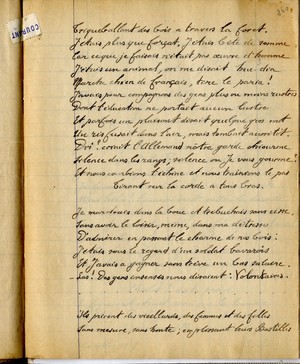 COURANT
Triqueballant des bois à travers la forêt.
J'étais plus que forçat, j'étais bête de somme
Car ce que je faisais n'était pas œuvre d'homme
J'étais un animal, on me disait
Marche chien de français,
J'avais pour compagnons des gens plus ou moins rustres
Dont l'éducation ne portait aucun lustre
Et parfois un plaisant disait quelque gros mot
Un rire fusait dans l'air, mais tombait aussitôt.
criait l'Allemand notre garde
Silence dans les rangs; silence ou je vous
Et nous courbions l'échine et nous traînions le pas
Tirant sur la corde à tous bras.
Je marchais dans la boue et trébuchais sans cesse
Sans avoir le loisir, même, dans ma détresse
D'admirer en passant le charme de nos bois:
J'étais sous le regard d'un soldat bavarois
Et j'avais à gagner sans trêve un bas salaire
Des gens insensés nous disaient: Volontaires.
Ils prirent des vieillards, des femmes et des filles
Sans mesure, sans honte; en emplissant leurs Bastilles